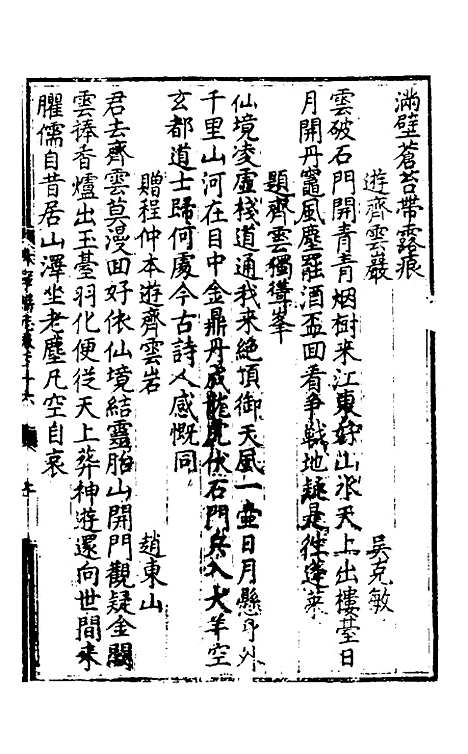 滿壁蒼苔帶露痕
遊齊雲巖　吳克敏
雲破石門開青青烟樹來江東好山水天上出樓臺日
月開丹竈風塵罷酒盃回看爭戰地疑是往蓬萊
題齊雲獨聳峯
仙境凌虛棧道通我來絕頂御天風一壺日月懸身外
千里山河在目中金鼎丹成龍虎伏石門兵入犬羊空
玄都道士歸何處今古詩人感慨同
贈程仲本遊齊雲岩　趙東山
君去齊雲莫漫回好依仙境結靈胎山開門觀疑金闕
雲捧香爐出玉臺羽化便從天上葬神遊還向世間來
臞儒自昔居山澤坐老塵凡空自哀